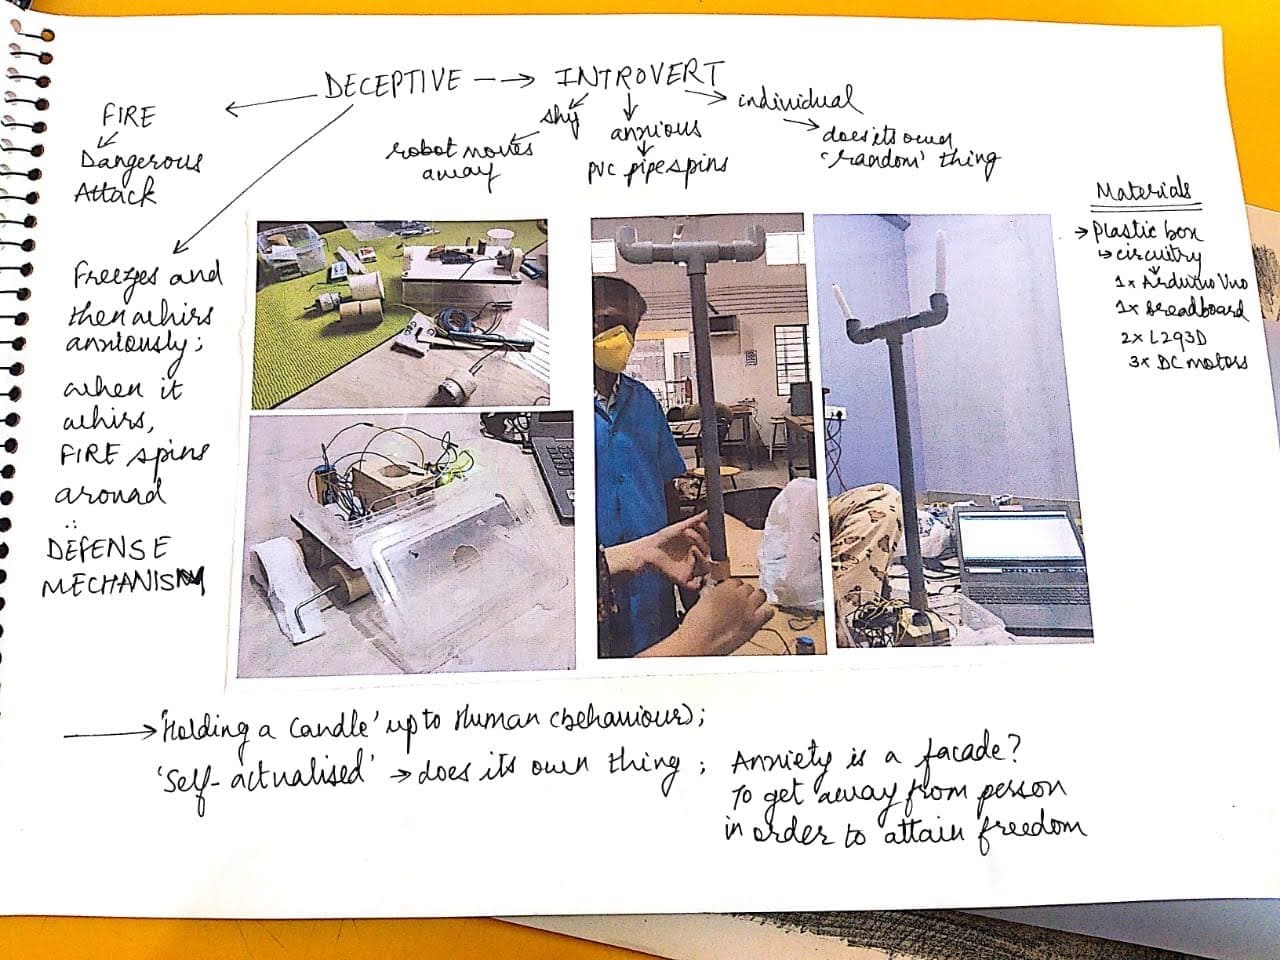 DECEPTIVE --→ INTROVERT
FIRE
Dangerous
Attack
shy
robot moves
away
anxious
PVC pipe spins
individual
does its own
'random' thing
Freezes and
then whirs
anxiously;
when it
whirs,
FIRE spins
around
DEFENSE
MECHANISM
Materials
→ Plastic box
↳ circuitry
1x Arduino Uno
1x breadboard
2x L293D
3x DC motors
→ 'Holding a Candle' up to Human (behaviour);
'Self-actualised' → does its own thing ; Anxiety is a facade?
To get away from person
in order to attain freedom